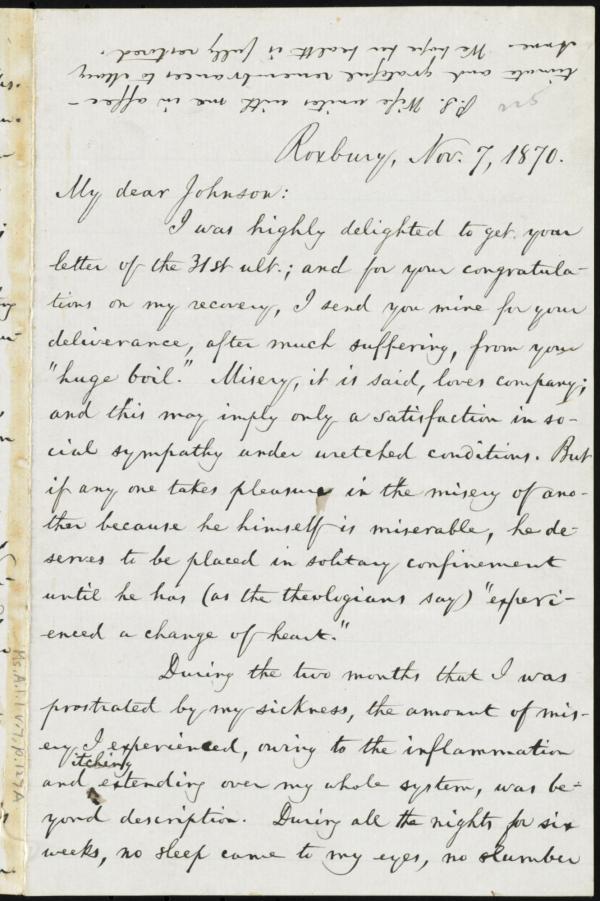 P.S. Wife unites with me in affec-
tionate and grateful remembrances to Mary
Anne. We hope her health is fully restored.
Roxbury, Nov. 7, 1870.
My dear Johnson:
I was highly delighted to get your
letter of the 31st ult.; and for your congratula-
tions on my recovery, I send you mine for your
deliverance, after much suffering, from your
"huge boil." Misery, it is said, loves company;
and this may imply only a satisfaction in so-
cial sympathy under wretched conditions. But
if any one takes pleasure in the misery of ano-
ther because he himself is miserable, he de-
serves to be placed in solitary confinement
until he has (as the theologians say) "experi-
enced a change of heart."
During the two months that I was
prostrated by my sickness, the amount of mis-
ery I experienced, owing to the inflammation
itching
and extending over my whole system, was be-
yond description. During all the nights for six
weeks, no sleep came to my eyes, no slumber
Ms.A.1.1 v.7, p.127A